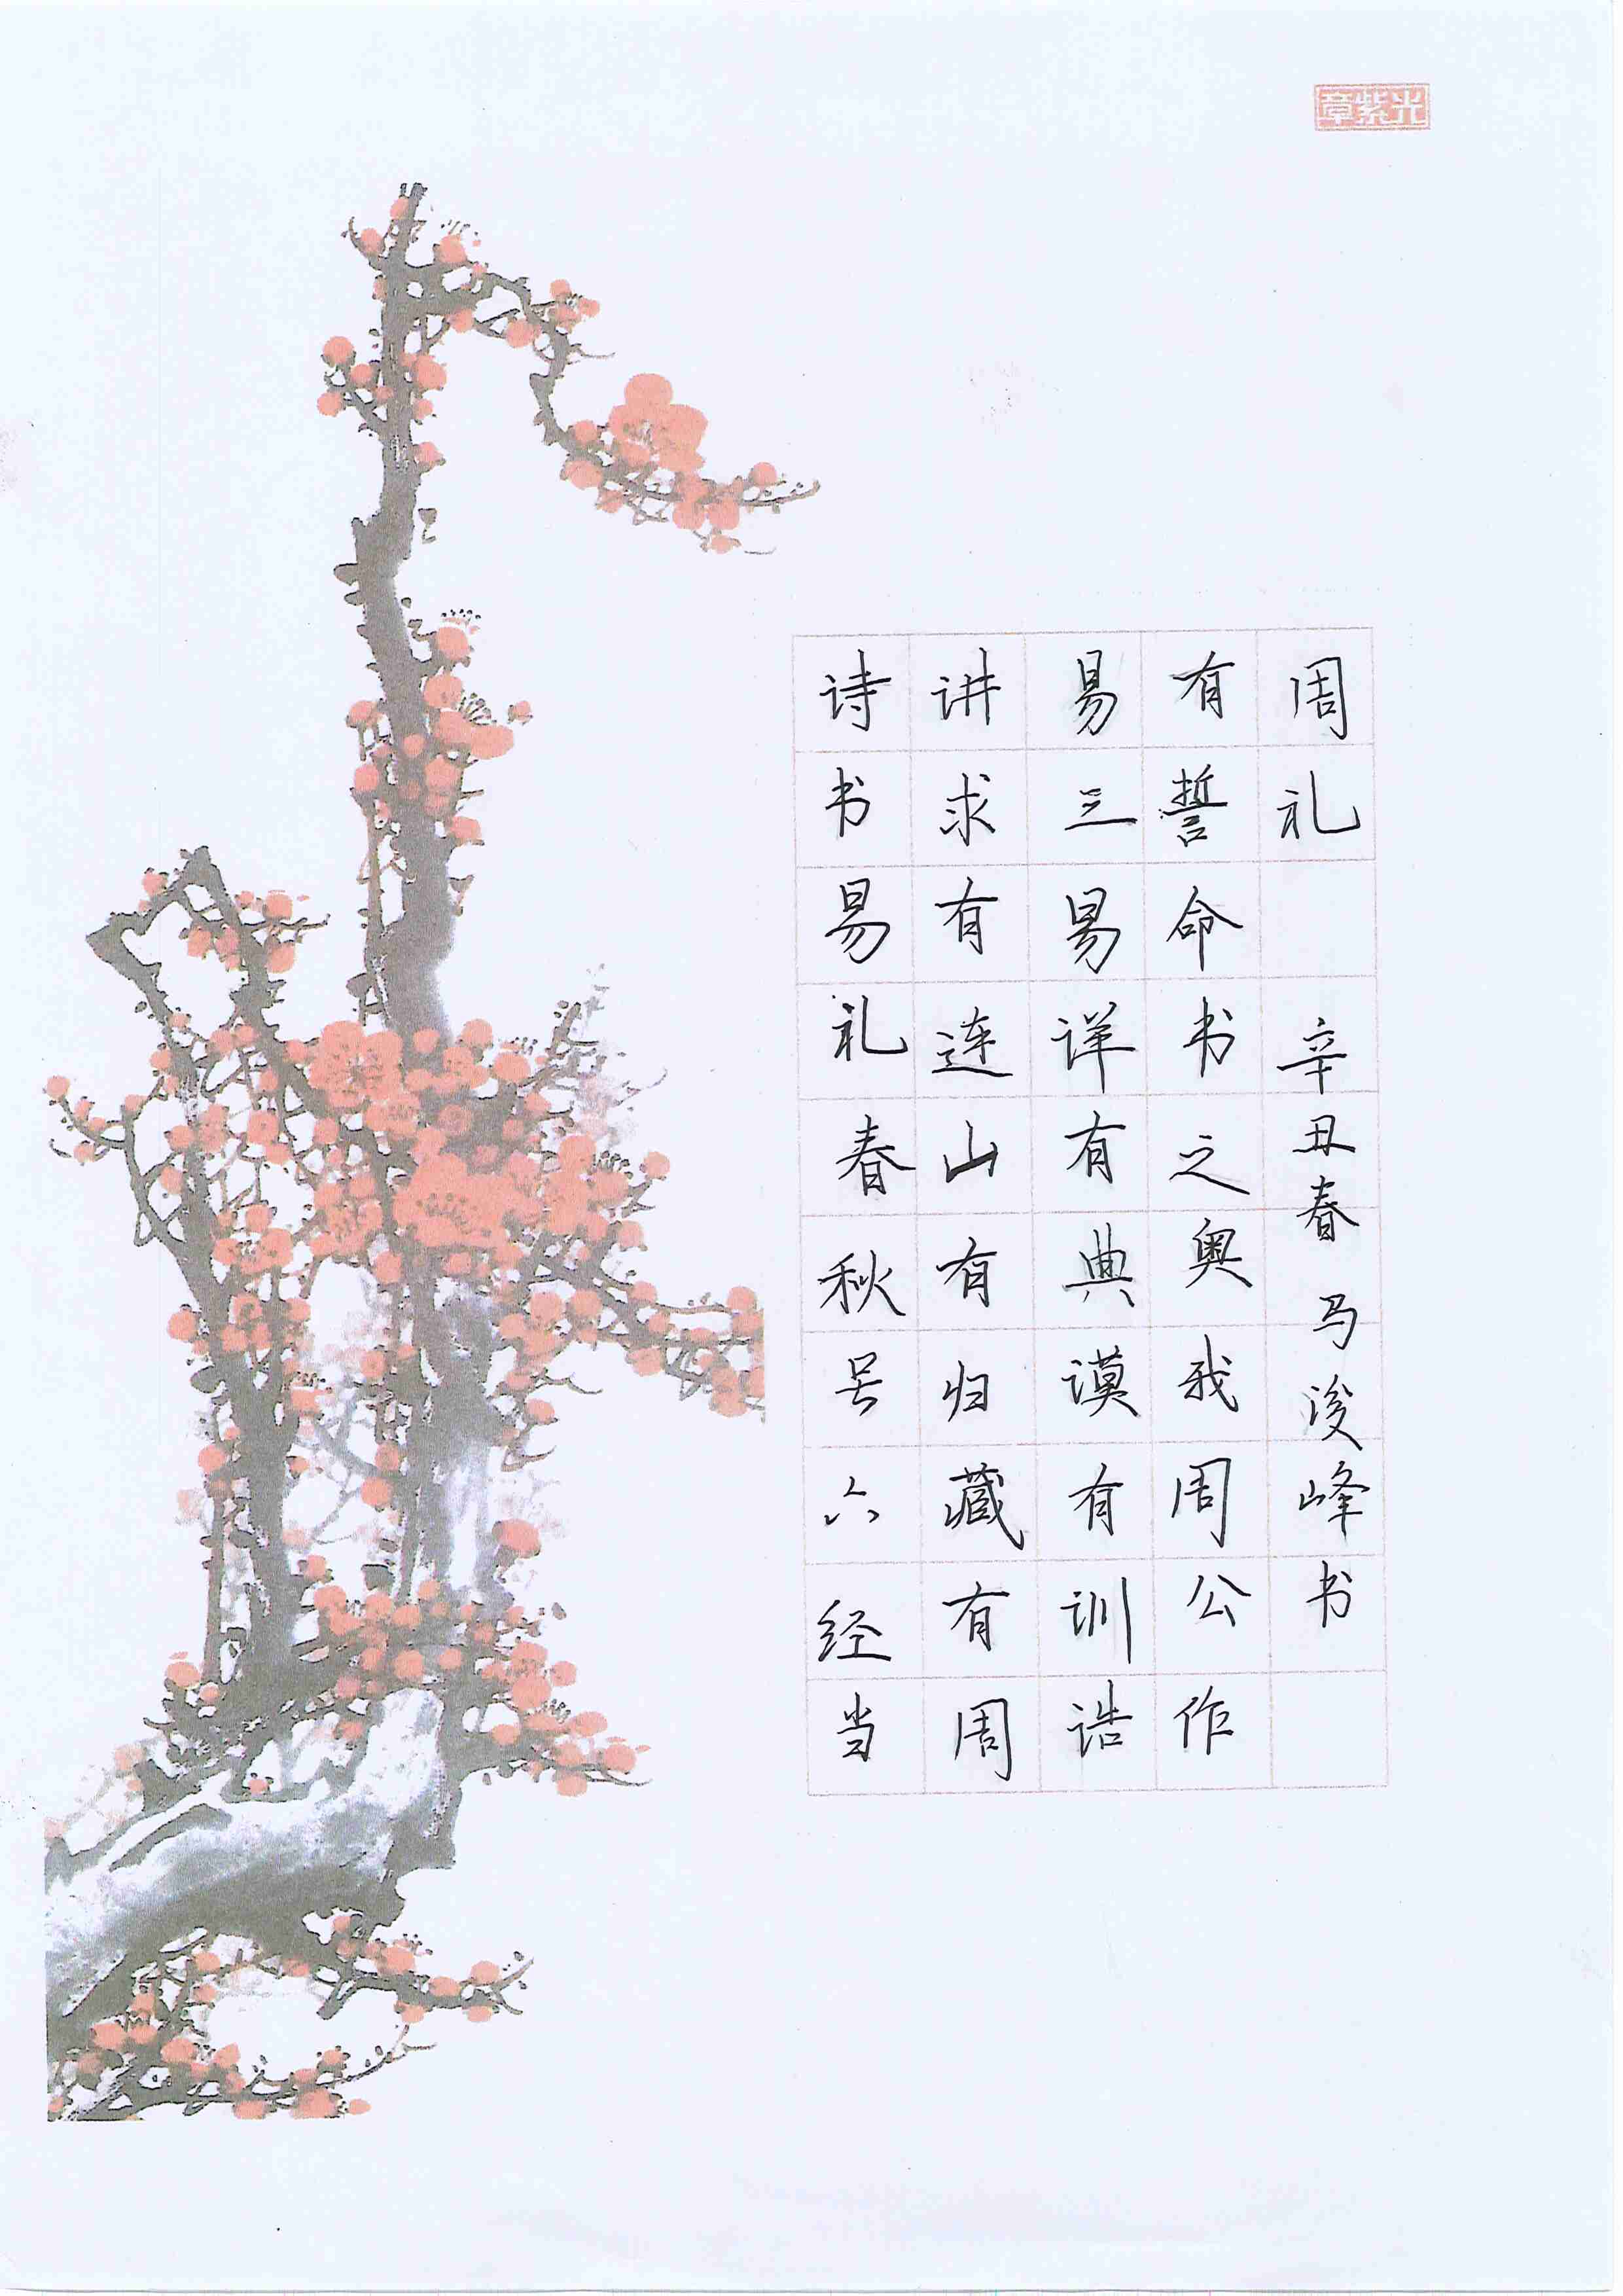 章紫光
诗书易礼春秋号六经当
讲求有连山有归藏有周
易三易详有典谟有训诰
有誓命书之奥我周公作
周礼 辛丑春 马浚峰书